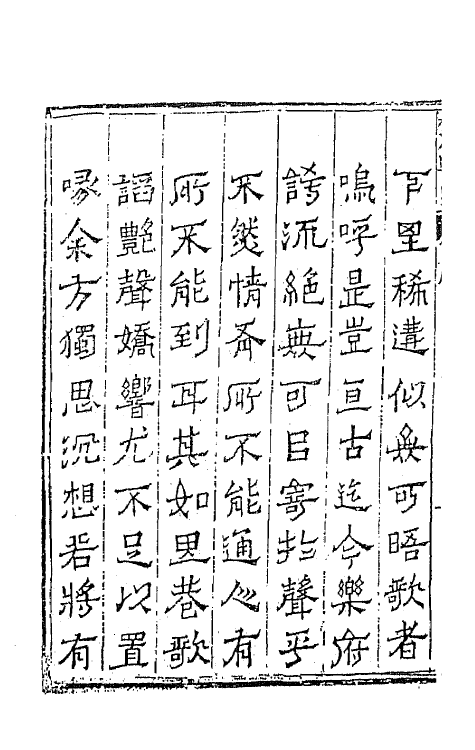 下里稀遘似無可晤歌者
嗚呼是豈亘古迄今樂府
諸流絶無可㠯寄於聲乎
不然情畚所不能通必有
所不能到耳其如里巷歌
謟艷聲嬌響尤不足以置
喙余方獨思沉想若將有